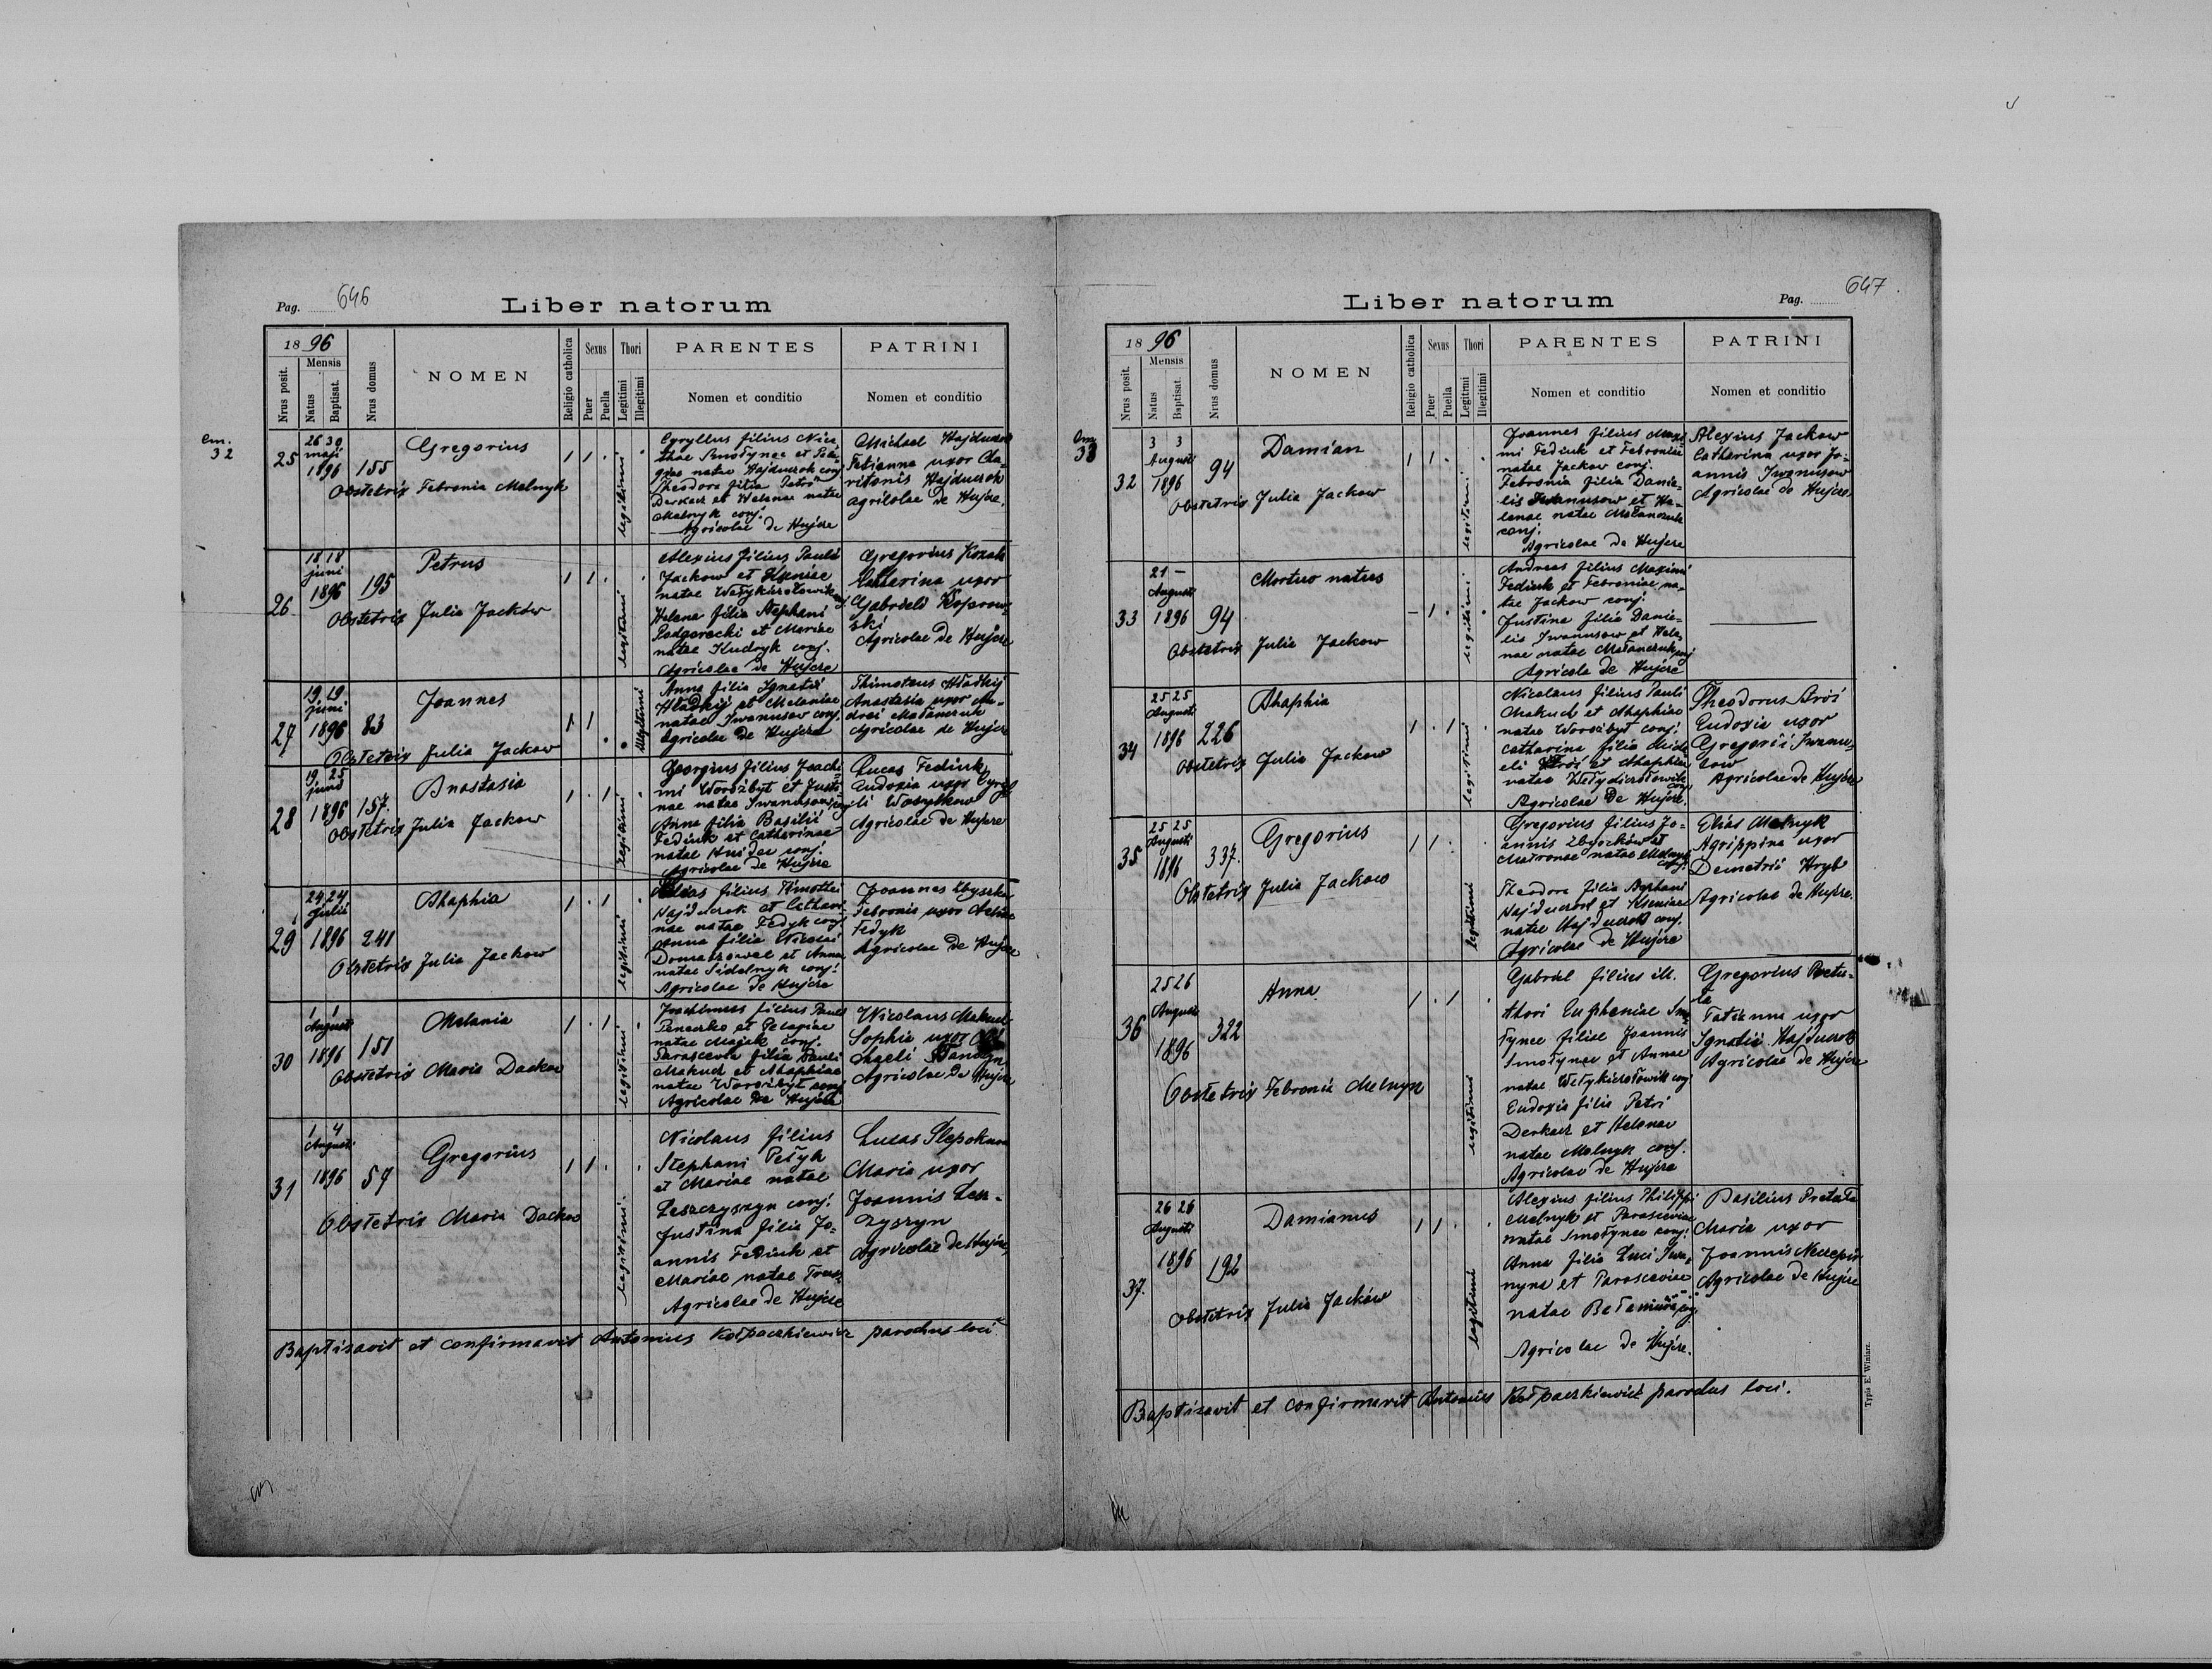 Pag. 646
Liber natorum
18 96
Mensis
Nrus posit.
Natus
Baptisat.
Nrus domus
NOMEN
Religio catholica
Sexus
Puer
Puella
Thori
Legitimi
Illegitimi
PARENTES
Nomen et conditio
PATRINI
Nomen et conditio
32
25
26 30
maji
1896
155
Gregorius
Obstetrix Febronia Melnyk
1 1 .
legitimi
Cyryllus filius Nici-
tae Smołynec et Pela-
giae natae Hajduczok conj.
Theodora filia Petri
Derkacz et Helenae natae
Melnyk conj.
Agricolae de Hujcze
Michael Hajduczok
Tatianna uxor Cha-
ritonis Hajduczok
agricolae de Hujcze.
26
18 18
juni
1896
195
Petrus
Obstetrix Julia Jacków
1 1 .
legitimi
Alexius filius Pauli
Jackow et Xseniae
natae Wełykichołowik
Helena filia Stephani
Podgorecki et Mariae
natae Kudryk conj.
Agricolae de Hujcze
Gregorius Kozak
Catherina uxor
Gabrieli Koprow-
ski
Agricolae de Hujcze
27
19 19
juni
1896
83
Joannes
Obstetrix Julia Jackow
1 1
illegitimi
Anna filia Ignatii
Hładkij et Melaniae
natae Iwanusow conj.
Agricolae de Hujcze
Thimoteus Hładkij
Anastasia uxor An-
drei Małanczuk
Agricolae de Hujcze
28
19 25
juni
1896
157.
Anastasia
Obstetrix Julia Jackow
1 . 1
legitimi
Georgius filius Joachi-
mi Worożbyt et Justi-
nae natae Iwanusow conj.
Anna filia Basilii
Fediuk et Catharinae
natae Huidec conj.
Agricolae de Hujcze
Lucas Fediuk
Eudoxia uxor Cyryl-
li Wasylkow
Agricolae de Hujcze
29
24 24
Julii
1896
241
Ahaphia
Obstetrix Julia Jackow
1 . 1
legitimi
filius Timothei
Hajduczok et Cathari-
nae natae Fedyk conj.
Anna filia Nicolai
et Annae
natae Sidelnyk conj.
Agricolae de Hujcze
Joannes
Febronia uxor
Fedyk
Agricolae de Hujcze
30
1 1
Augusti
1896
151
Melania
Obstetrix Maria Dackow
1 . 1
legitimi
Joachimus filius Pauli
et Pelagiae
natae Majak conj.
Parascevia filia Pauli
Makuch et Ahaphiae
natae Worożbyt conj.
Agricolae de Hujcze
Nicolaus Makuch
Sophia uxor
Agricolae de Hujcze
31
1 4
Augusti
1896
57
Gregorius
Obstetrix Maria Dackow
1 1 .
legitimi.
Nicolaus filius
Stephani Petyk
et Mariae natae
Leszczyszyn conj.
Justina filia Jo-
annis Fediuk et
Mariae natae
Agricolae de Hujcze
Lucas Slepokura
Maria uxor
Joannis Lesz-
czyszyn
Agricolae de Hujcze
Baptisavit et confirmavit Antonius Kołpaczkiewicz parochus loci.
Liber natorum
Pag. 647
18 96
Mensis
Nrus posit.
Natus
Baptisat.
Nrus domus
NOMEN
Religio catholica
Sexus
Puer
Puella
Thori
Legitimi
Illegitimi
PARENTES
Nomen et conditio
PATRINI
Nomen et conditio
32
3 3
Augusti
1896
94
Damian
Obstetrix Julia Jackow
1 1 .
legitimi.
Joannes filius Maxi-
mi Fediuk et Febroniae
natae Jackow conj.
Febronia filia Danie-
lis Iwanusow et He-
lenae natae Małanczuk
conj.
Agricolae de Hujcze
Alexius Jackow
Catharina uxor Jo-
annis Iwanusow
Agricolae de Hujcze
33
21 –
Augusti
1896
94
Mortuo natus
Obstetrix Julia Jackow
– 1 .
legitimi
Andreas filius Maximi
Fediuk et Febroniae na-
tae Jackow conj.
Justina filia Danie-
lis Iwanusow et Hele-
nae natae Małanczuk conj.
Agricola de Hujcze
34
25 25
Augusti
1896
226
Ahaphia
Obstetrix Julia Jackow
1 . 1
legitimi
Nicolaus filius Pauli
Makuch et Ahaphiae
natae Worożbyt conj.
Catharina filia Micha-
eli et Ahaphiae
natae Wełykichołowik
conj.
Agricolae de Hujcze.
Theodorus
Eudoxia uxor
Gregorii Iwanu-
sow
Agricolae de Hujcze
35
25 25
Augusti
1896
337.
Gregorius
Obstetrix Julia Jackow
1 1 .
legitimi
Gregorius filius Jo-
annis et
Matronae natae Melnyk
conj.
Theodora filia Stephani
Hajduczok et Kseniae
natae Hajduczok conj.
Agricolae de Hujcze
Elias Melnyk
Agrippina uxor
Demetrii Hryb
Agricolae de Hujcze.
36
25 26
Augusti
1896
322
Anna
Obstetrix Febronia Melnyk
1 . 1
legitimi
Gabriel filius ill.
thori Eupheniae Smo-
łynec filiae Joannis
Smołynec et Annae
natae Wełykichołowik conj.
Eudoxia filia Petri
Derkacz et Helenae
natae Melnyk conj.
Agricolae de Hujcze
Gregorius Pretu-
ła
Tatianna uxor
Ignatii Hajduczok
Agricolae de Hujcze
37.
26 26
Augusti
1896
192
Damianus
Obstetrix Julia Jacków
1 1 .
legitimi
Alexius filius Philippi
Melnyk et Parasceviae
natae Smołynec conj.
Anna filia Luci Iwa-
nyna et Parasceviae
natae
Agricolae de Hujcze.
Basilius Pretuła
Maria uxor
Joannis
Agricolae de Hujcze
Baptisavit et confirmavit Antonius Kołpaczkiewicz parochus loci.
Typis E. Winiarz.